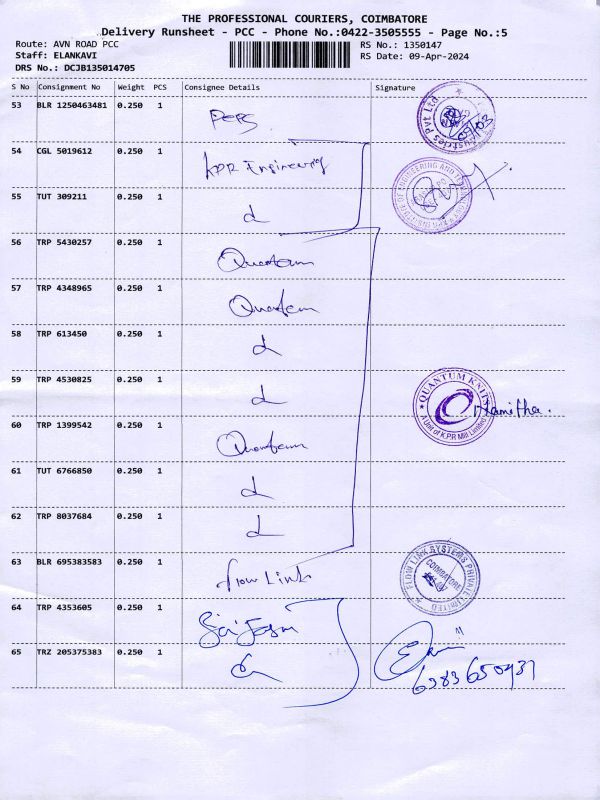 THE PROFESSIONAL COURIERS, COIMBATORE
Delivery Runsheet - PCC - Phone No.:0422-3505555 - Page No.:5
Route: AVN ROAD PCC
RS No.: 1350147
Staff: ELANKAVI
RS Date: 09-Apr-2024
DRS No.: DCJB135014705
S No Consignment No Weight PCS Consignee Details Signature
53 BLR 1250463481 0.250 1
54 CGL 5019612 0.250 1 KPR Engineering
55 TUT 309211 0.250 1
56 TRP 5430257 0.250 1 Quantum
57 TRP 4348965 0.250 1 Quantum
58 TRP 613450 0.250 1
59 TRP 4530825 0.250 1 QUANTUM KNITS
A Unit of K.P.R Mill Limited
60 TRP 1399542 0.250 1 Quantum
61 TUT 6766850 0.250 1
62 TRP 8037684 0.250 1
63 BLR 695383583 0.250 1 Flow Link
FLOW LINK SYSTEMS PRIVATE LIMITED
COIMBATORE
64 TRP 4353605 0.250 1
65 TRZ 205375383 0.250 1